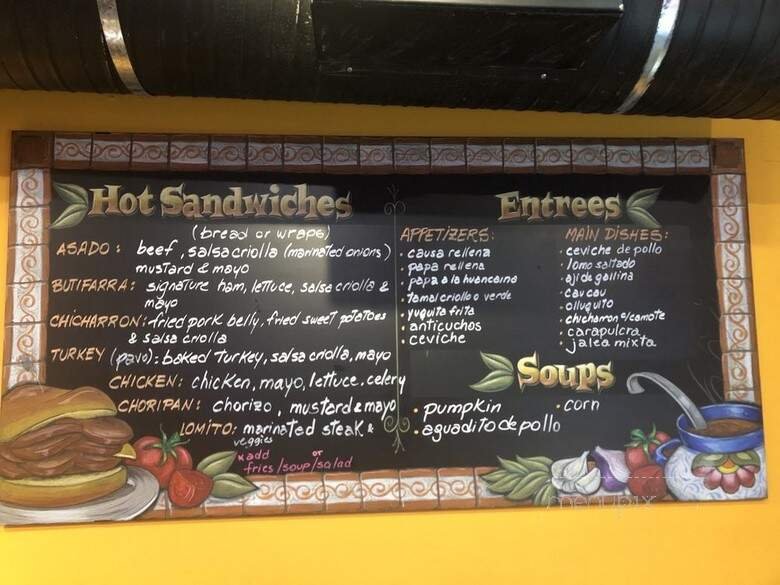 Hot Sandwiches
(bread or wraps)
ASADO: beef, salsa criolla (marinated onions)
mustard & mayo
BUTIFARRA: signature ham, lettuce, salsa criolla &
mayo
CHICHARRON: fried pork belly, fried sweet potatoes
& salsa criolla
TURKEY (pavo): baked turkey, salsa criolla, mayo
CHICKEN: chicken, mayo, lettuce, celery
CHORIPAN: chorizo, mustard & mayo
LOMITO: marinated steak &
veggies
* add
fries/soup/or salad
Entrees
APPETIZERS:
• causa rellena
• papa rellena
• papa a la huancaina
• tamal criollo o verde
• yuquita frita
• anticuchos
• ceviche
MAIN DISHES:
• ceviche de pollo
• lomo saltado
• aji de gallina
• cau cau
• olluquito
• chicharron c/camote
• carapulcra
• jalea mixta
Soups
• pumpkin
• corn
• aguadito de pollo
menupix